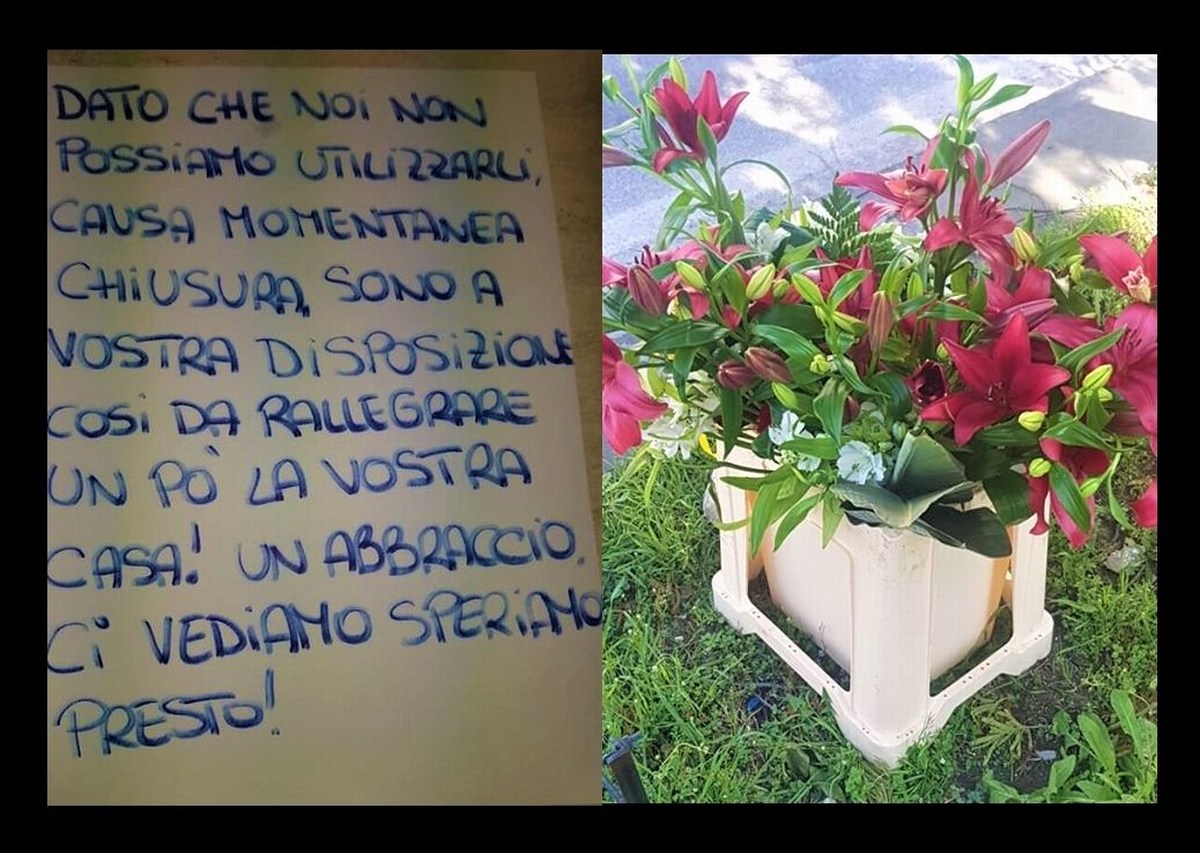 DATO CHE NOI NON
POSSIAMO UTILIZZARLI,
CAUSA MOMENTANEA
CHIUSURA, SONO A
VOSTRA DISPOSIZIONE
COSI DA RALLEGRARE
UN PÒ LA VOSTRA
CASA! UN ABBRACCIO.
CI VEDIAMO SPERIAMO
PRESTO!